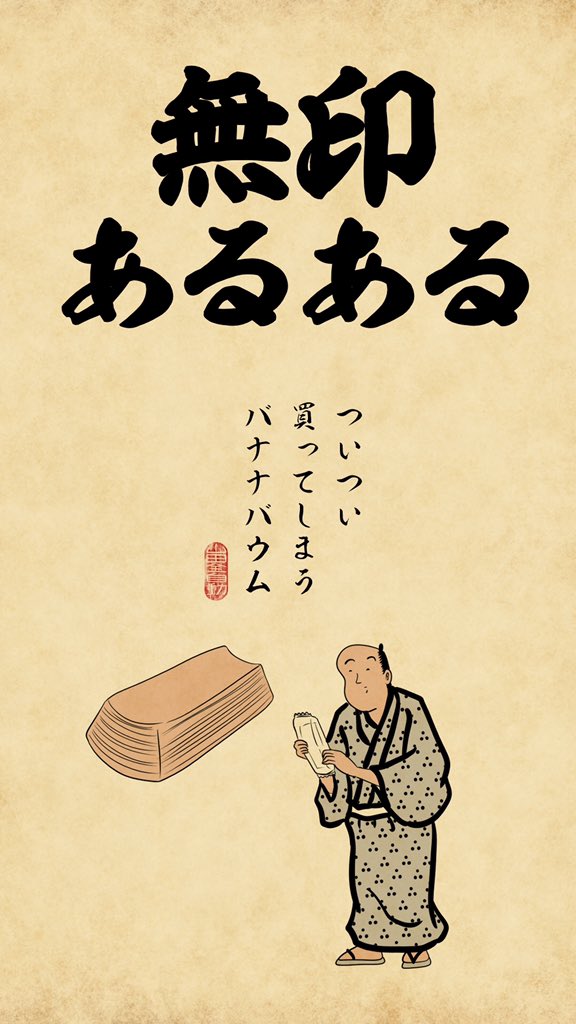 無印
あるある
ついつい
買ってしまう
バナナバウム